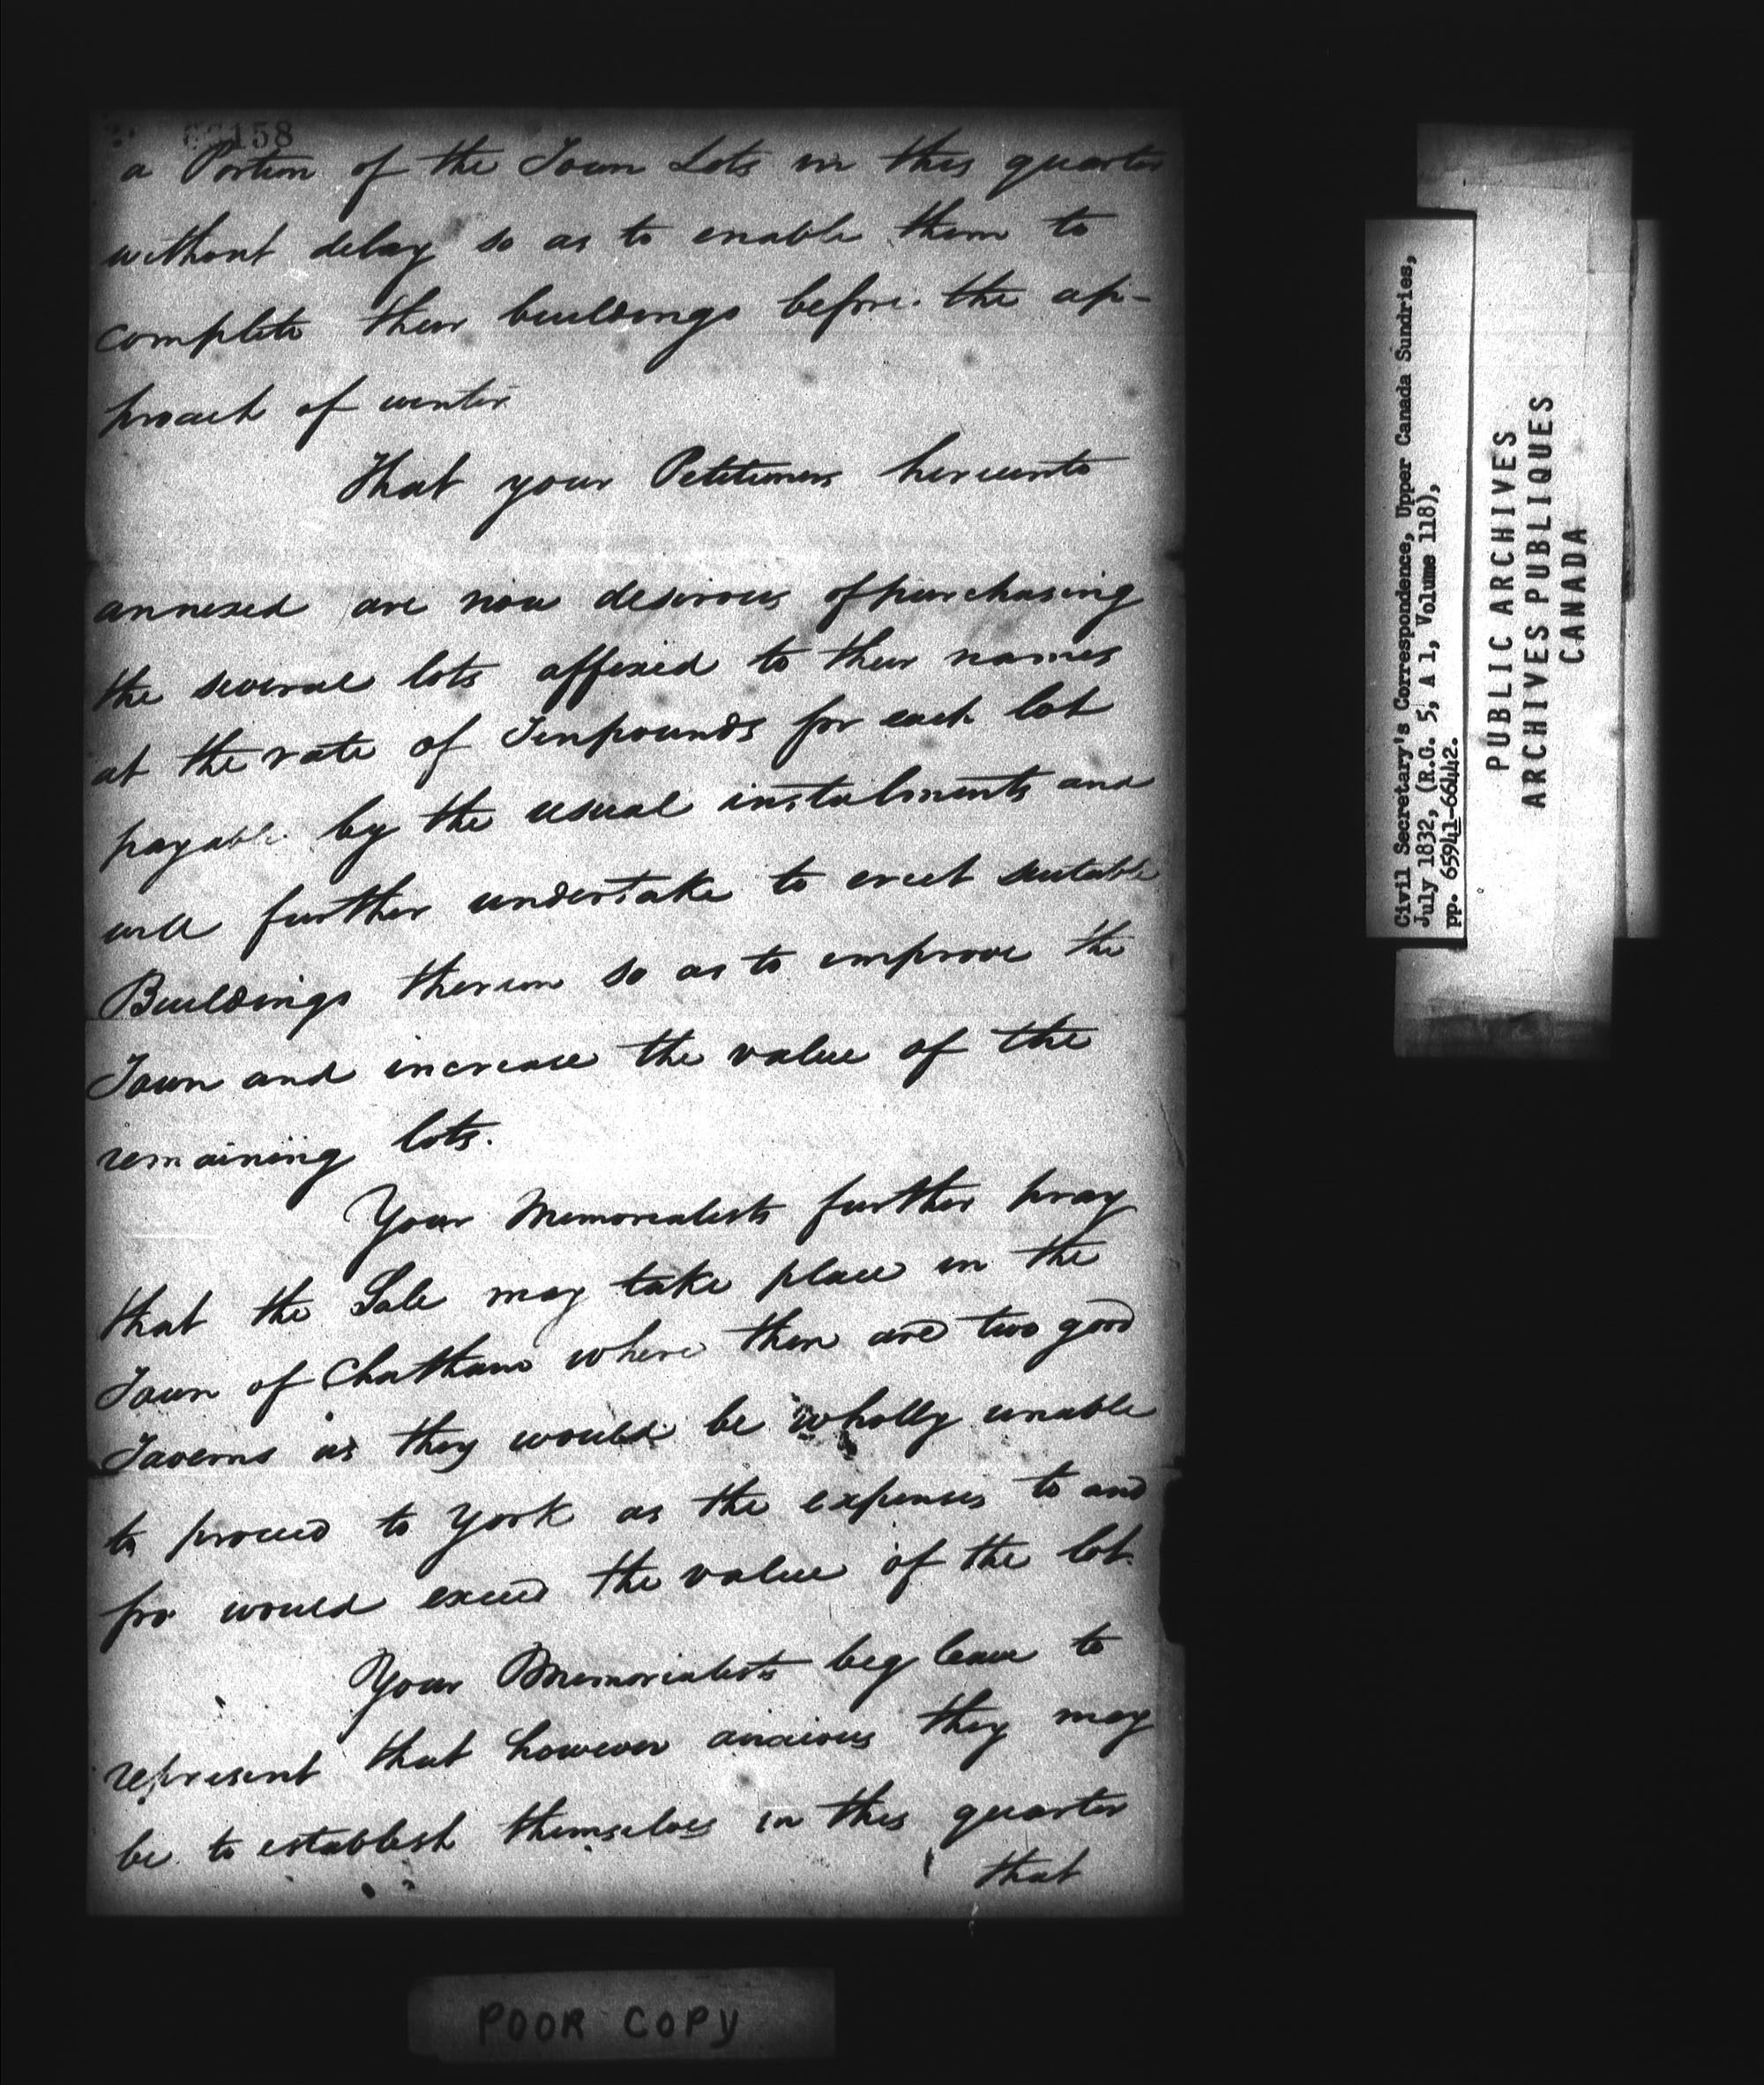 a Portion of the Town Lots in this quarter
without delay so as to enable them to
complete their buildings before the ap-
proach of winter
That your Petitioners hereunto
annexed are now desirous of purchasing
the several lots affixed to their names
at the rate of Ten pounds for each lot
payable by the usual instalments and
will further undertake to erect suitable
Buildings thereon so as to improve the
Town and increase the value of the
remaining lots.
Your Memorialists further pray
that the Sale may take place in the
Town of Chatham where there are two good
Taverns as they would be wholly unable
to proceed to York as the expenses to and
fro would exceed the value of the lot.
Your Memorialists beg leave to
represent that however anxious they may
be to establish themselves in this quarter
that
Civil Secretary's Correspondence, Upper Canada Sundries,
July 1832, (R.G. 5, A 1, Volume 118),
pp. 65941-66442.
PUBLIC ARCHIVES
ARCHIVES PUBLIQUES
CANADA
POOR COPY